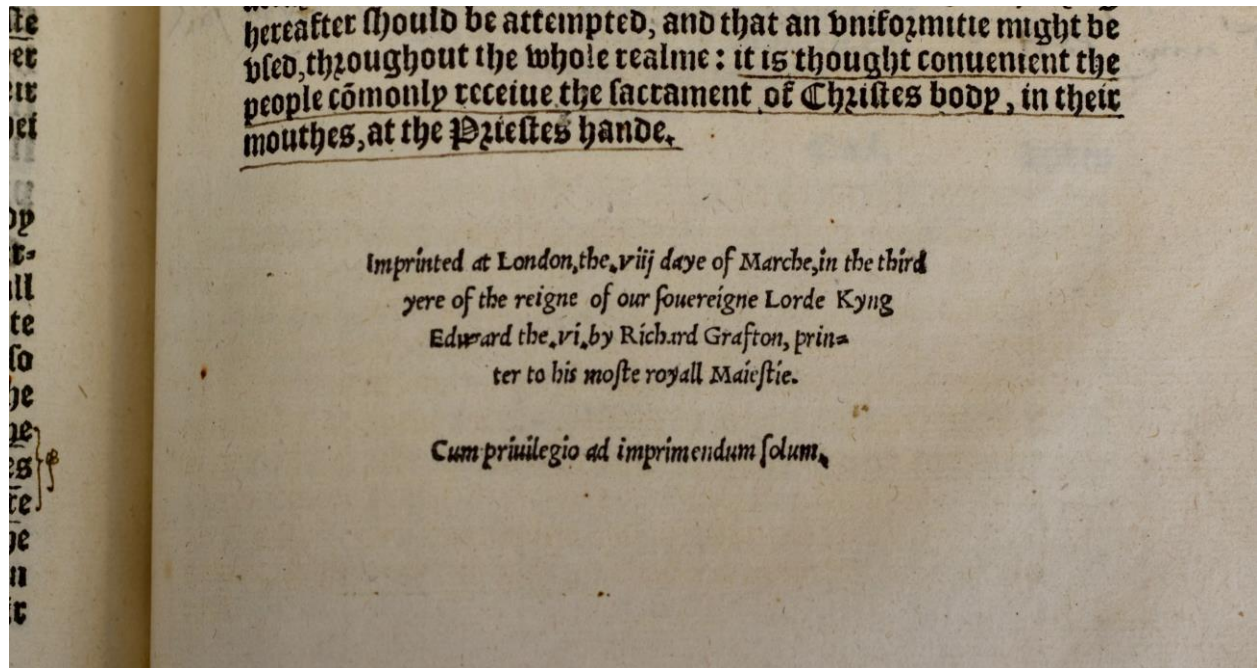 hereafter ſhould be attempted, and that an vniformitie might be
vſed, throughout the whole realme: it is thought conuenient the
people cõmonly receiue the ſacrament of Chriſtes body, in their
mouthes, at the Prieſtes hande.
Imprinted at London, the. viij daye of Marche, in the third
yere of the reigne of our ſouereigne Lorde Kyng
Edward the. vi. by Richard Grafton, prin-
ter to his moſte royall Maieſtie.
Cum priuilegio ad imprimendum ſolum.